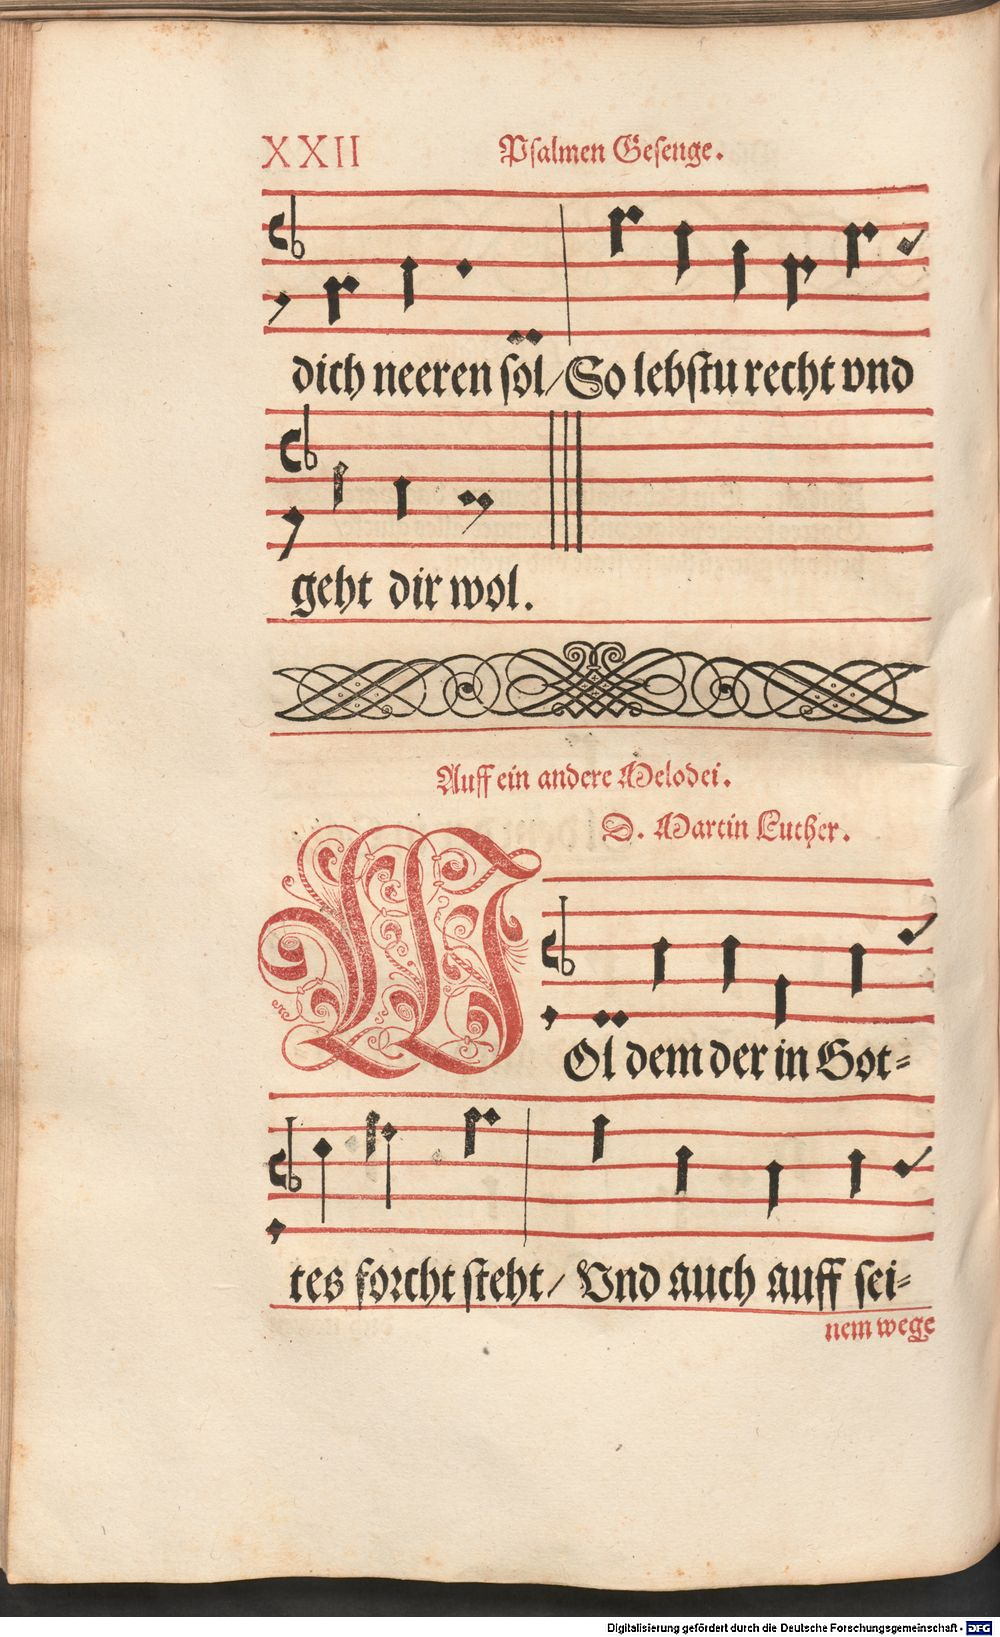 XXII Psalmen Gesenge.
dich neeren sol/ So lebstu recht vnd
geht dir wol.
Auff ein andere Melodei.
D. Martin Luther.
WOl dem der in Got-
tes forcht steht/ Vnd auch auff sei-
nem wege
Digitalisierung gefördert durch die Deutsche Forschungsgemeinschaft - DFG